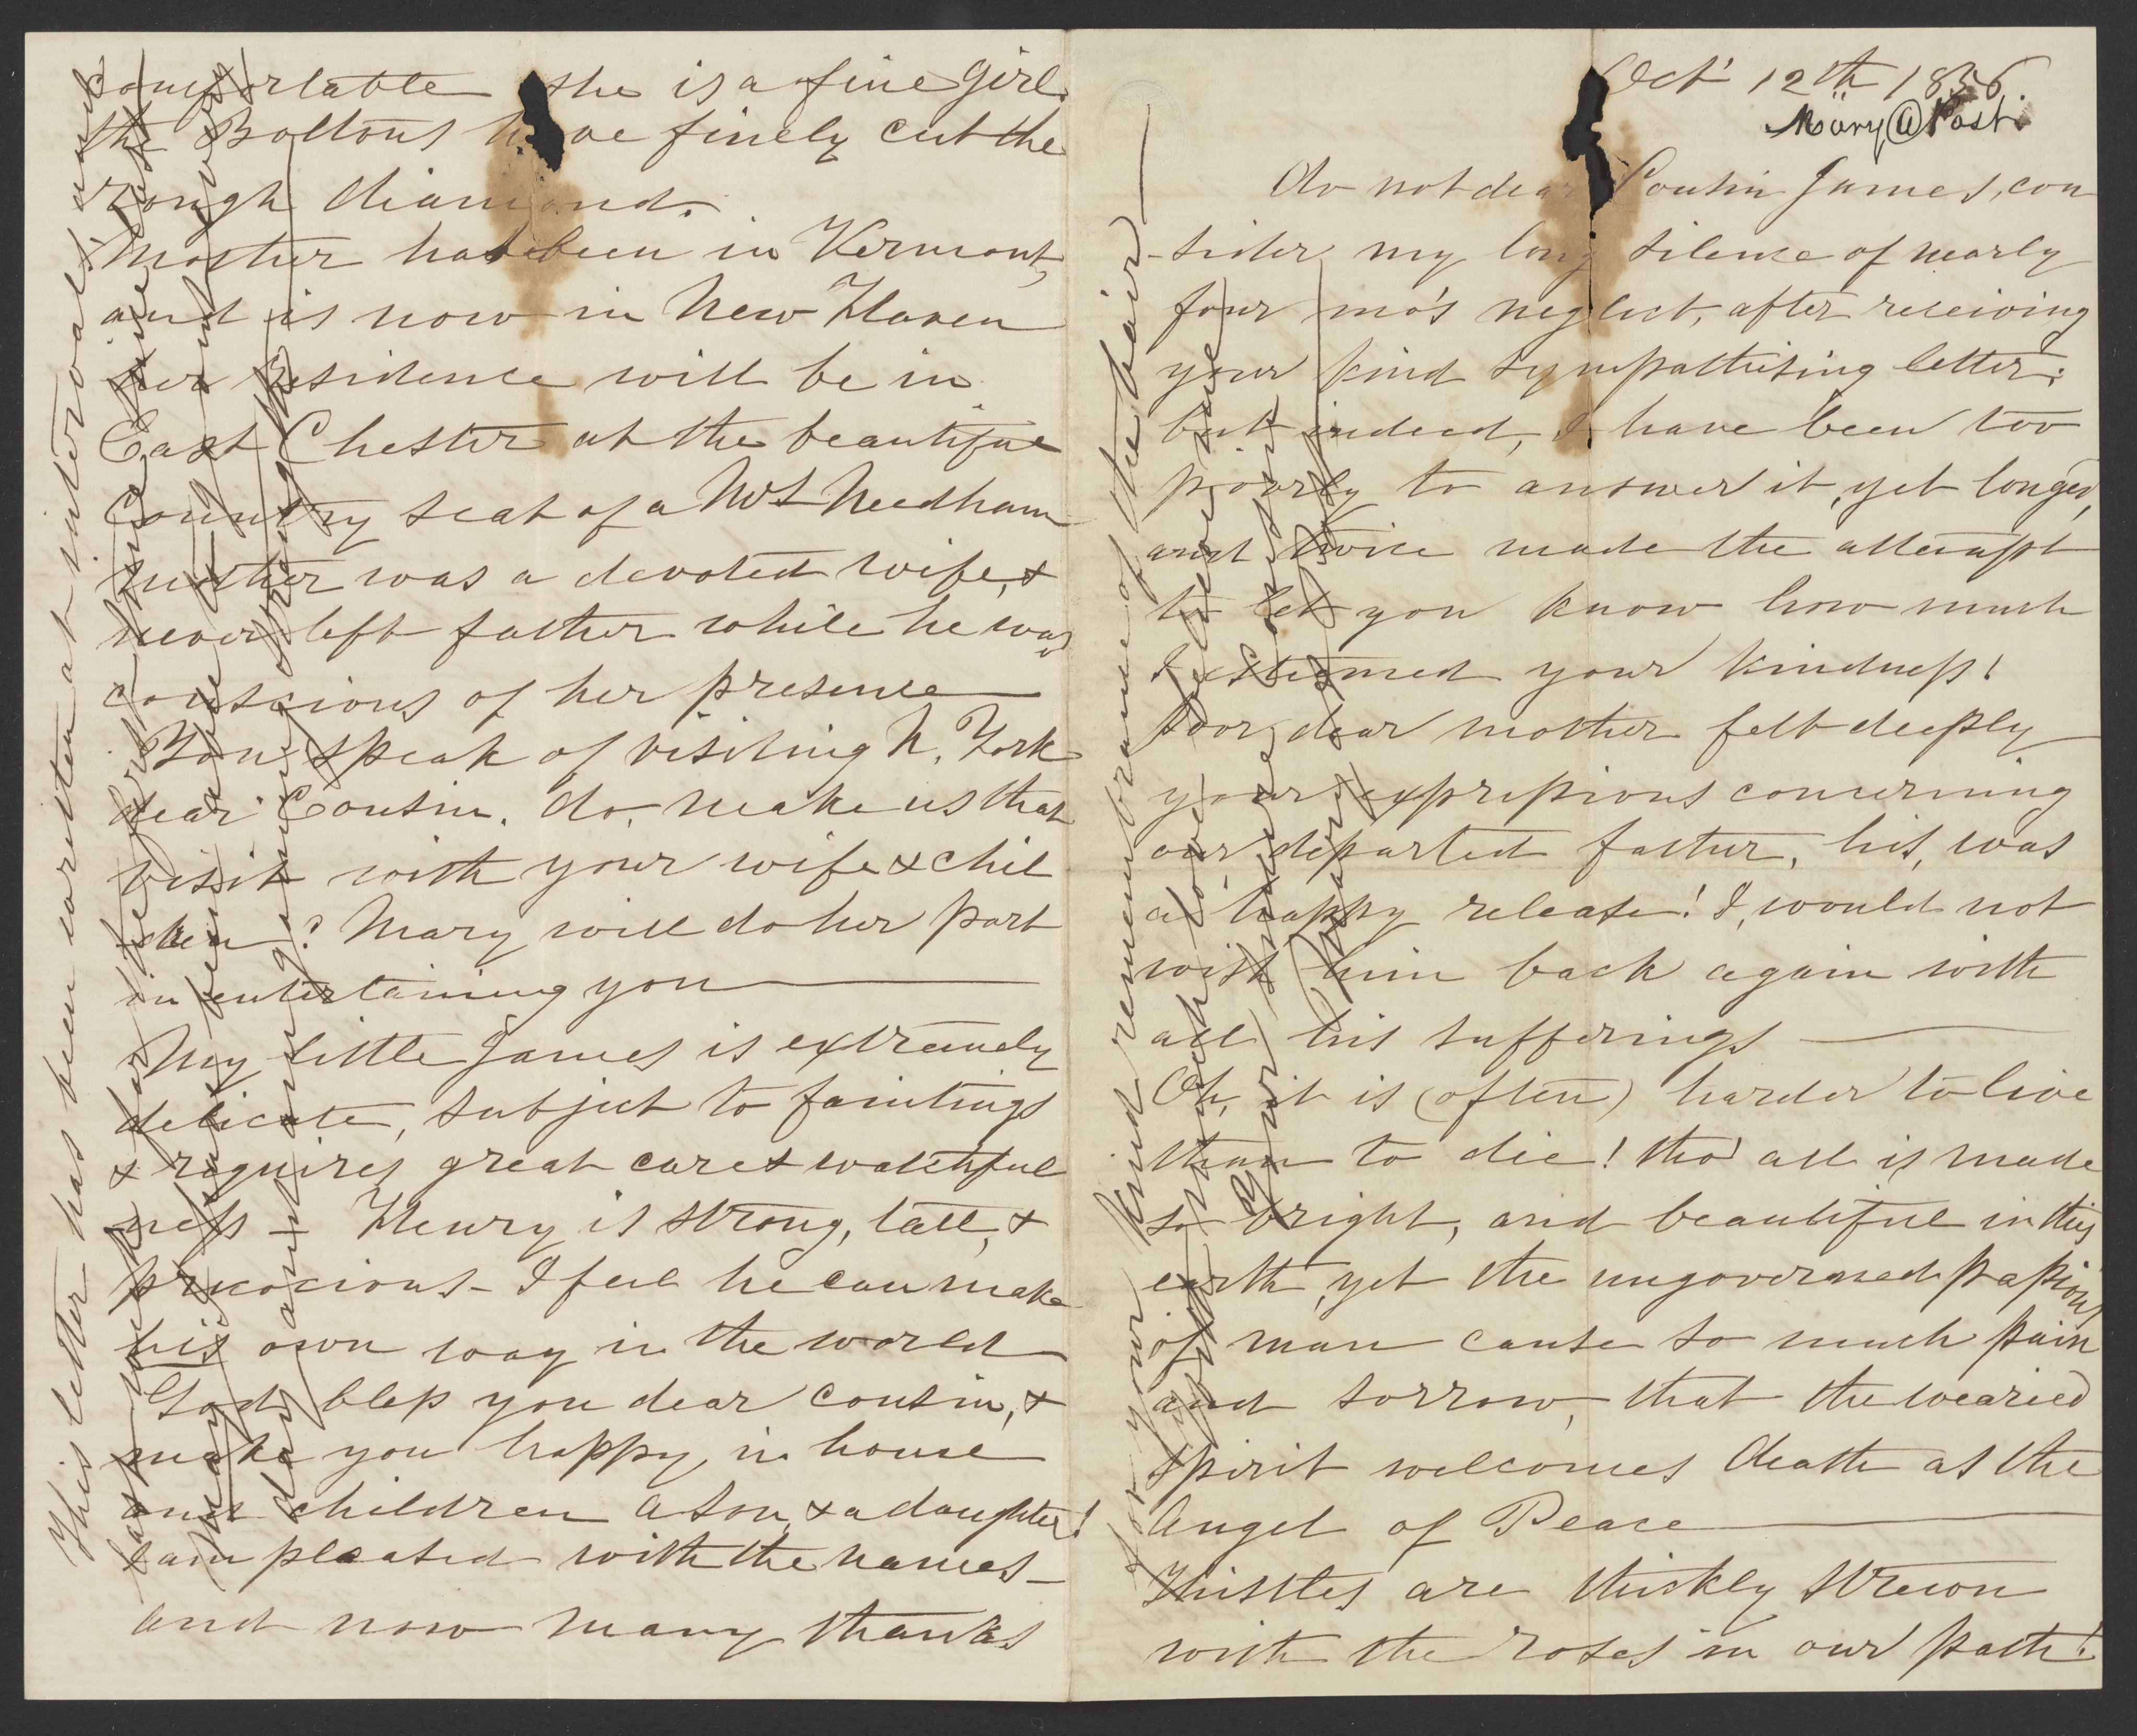 Oct' 12th 1856.
Mary @ Post.
Do not dear Cousin James, con
-sider my long silence of nearly
four mo's neglect, after receiving
your kind sympathising letter;
but indeed, I have been too
poorly to answer it, yet longed,
and twice made the attempt
to let you know how much
I esteemed your kindness!
poor dear mother felt deeply
your expressions concerning
our departed father, his, was
a happy release! I, would not
wish him back again with
all his sufferings —
Oh, it is (often) harder to live
than to die! tho' all is made
so bright, and beautiful in this
earth, yet the ungoverned passions
of man cause so much pain
and sorrow, that the wearied
spirit welcomes death as the
Angel of Peace —
Thistles are thickly strewn
with the roses in our path!
for your kind remembrance of the hair —
With much love believe me
Your sincere Cousin
Mary
comfortable she is a fine girl.
the Boltons have finely cut the
rough diamond.
Mother has been in Vermont,
and is now in New Haven
her residence will be in
East Chester at the beautiful
Country seat of a Mrs Needham
Mother was a devoted wife, &
never left father while he was
conscious of her presence —
You speak of visiting N. York
dear Cousin. do, make us that
visit with your wife & chil
-dren? Mary will do her part
in entertaining you —
My little James is extremely
delicate, subject to faintings
& requires great care & watchful
ness - Henry is strong, tall, &
precocious - I feel he can make
his own way in the world
God bless you dear cousin, &
make you happy in house
and children a son & a daughter!
I am pleased with the names -
and now many thanks
This letter has been written at intervals